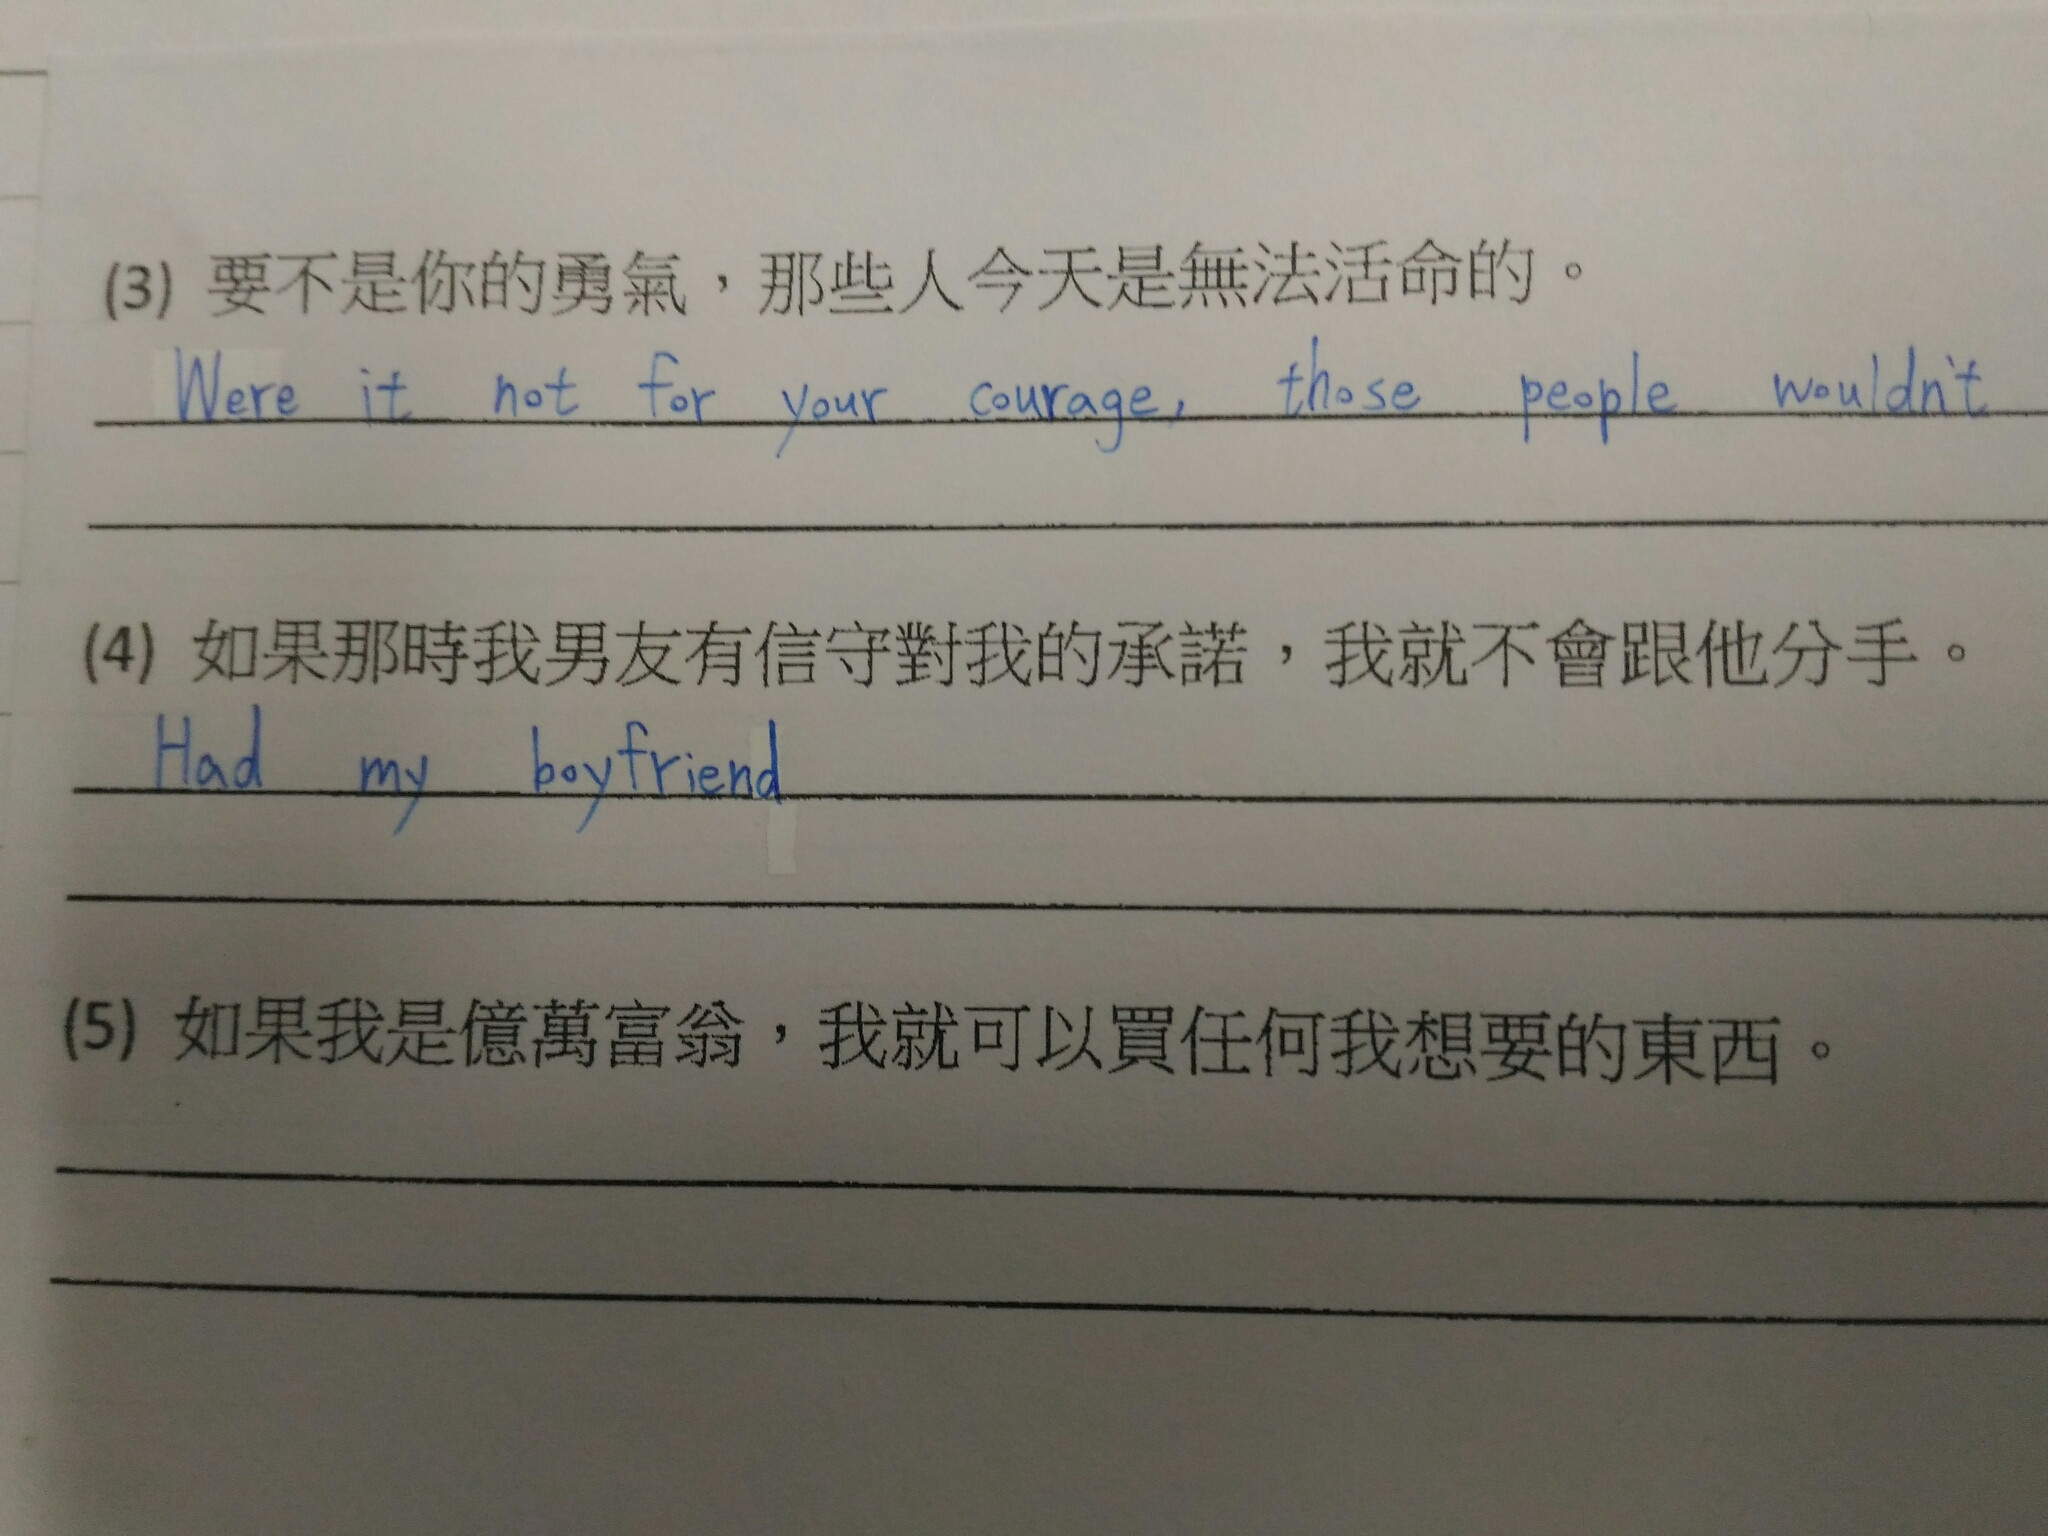 (3) 要不是你的勇氣，那些人今天是無法活命的。
Were it not for your courage, those people wouldn't
(4) 如果那時我男友有信守對我的承諾，我就不會跟他分手。
Had my boyfriend
(5) 如果我是億萬富翁，我就可以買任何我想要的東西。